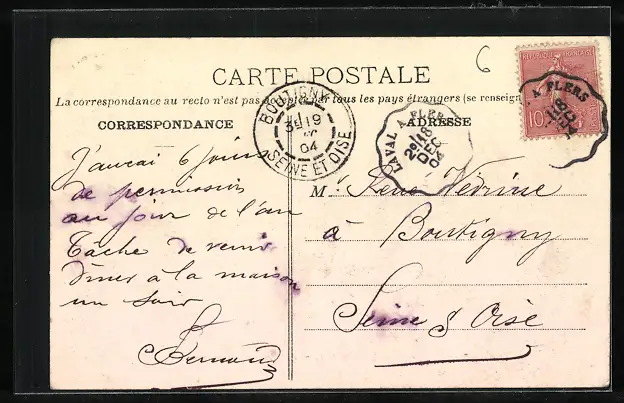 6
CARTE POSTALE
La correspondance au recto n'est pas acceptée par tous les pays étrangers (se renseign
CORRESPONDANCE
ADRESSE
REPUBLIQUE FRANÇAISE
10
BOUTIGNY
19
04
SEINE ET OISE
LAVAL A FLERS
2º 18
DEC
04
A FLERS
18
J'aurai 6 jours
de permission
au jour de l'an
Tâche de venir
dîner à la maison
un soir
M. René Vedrine
à Boutigny
Seine & Oise